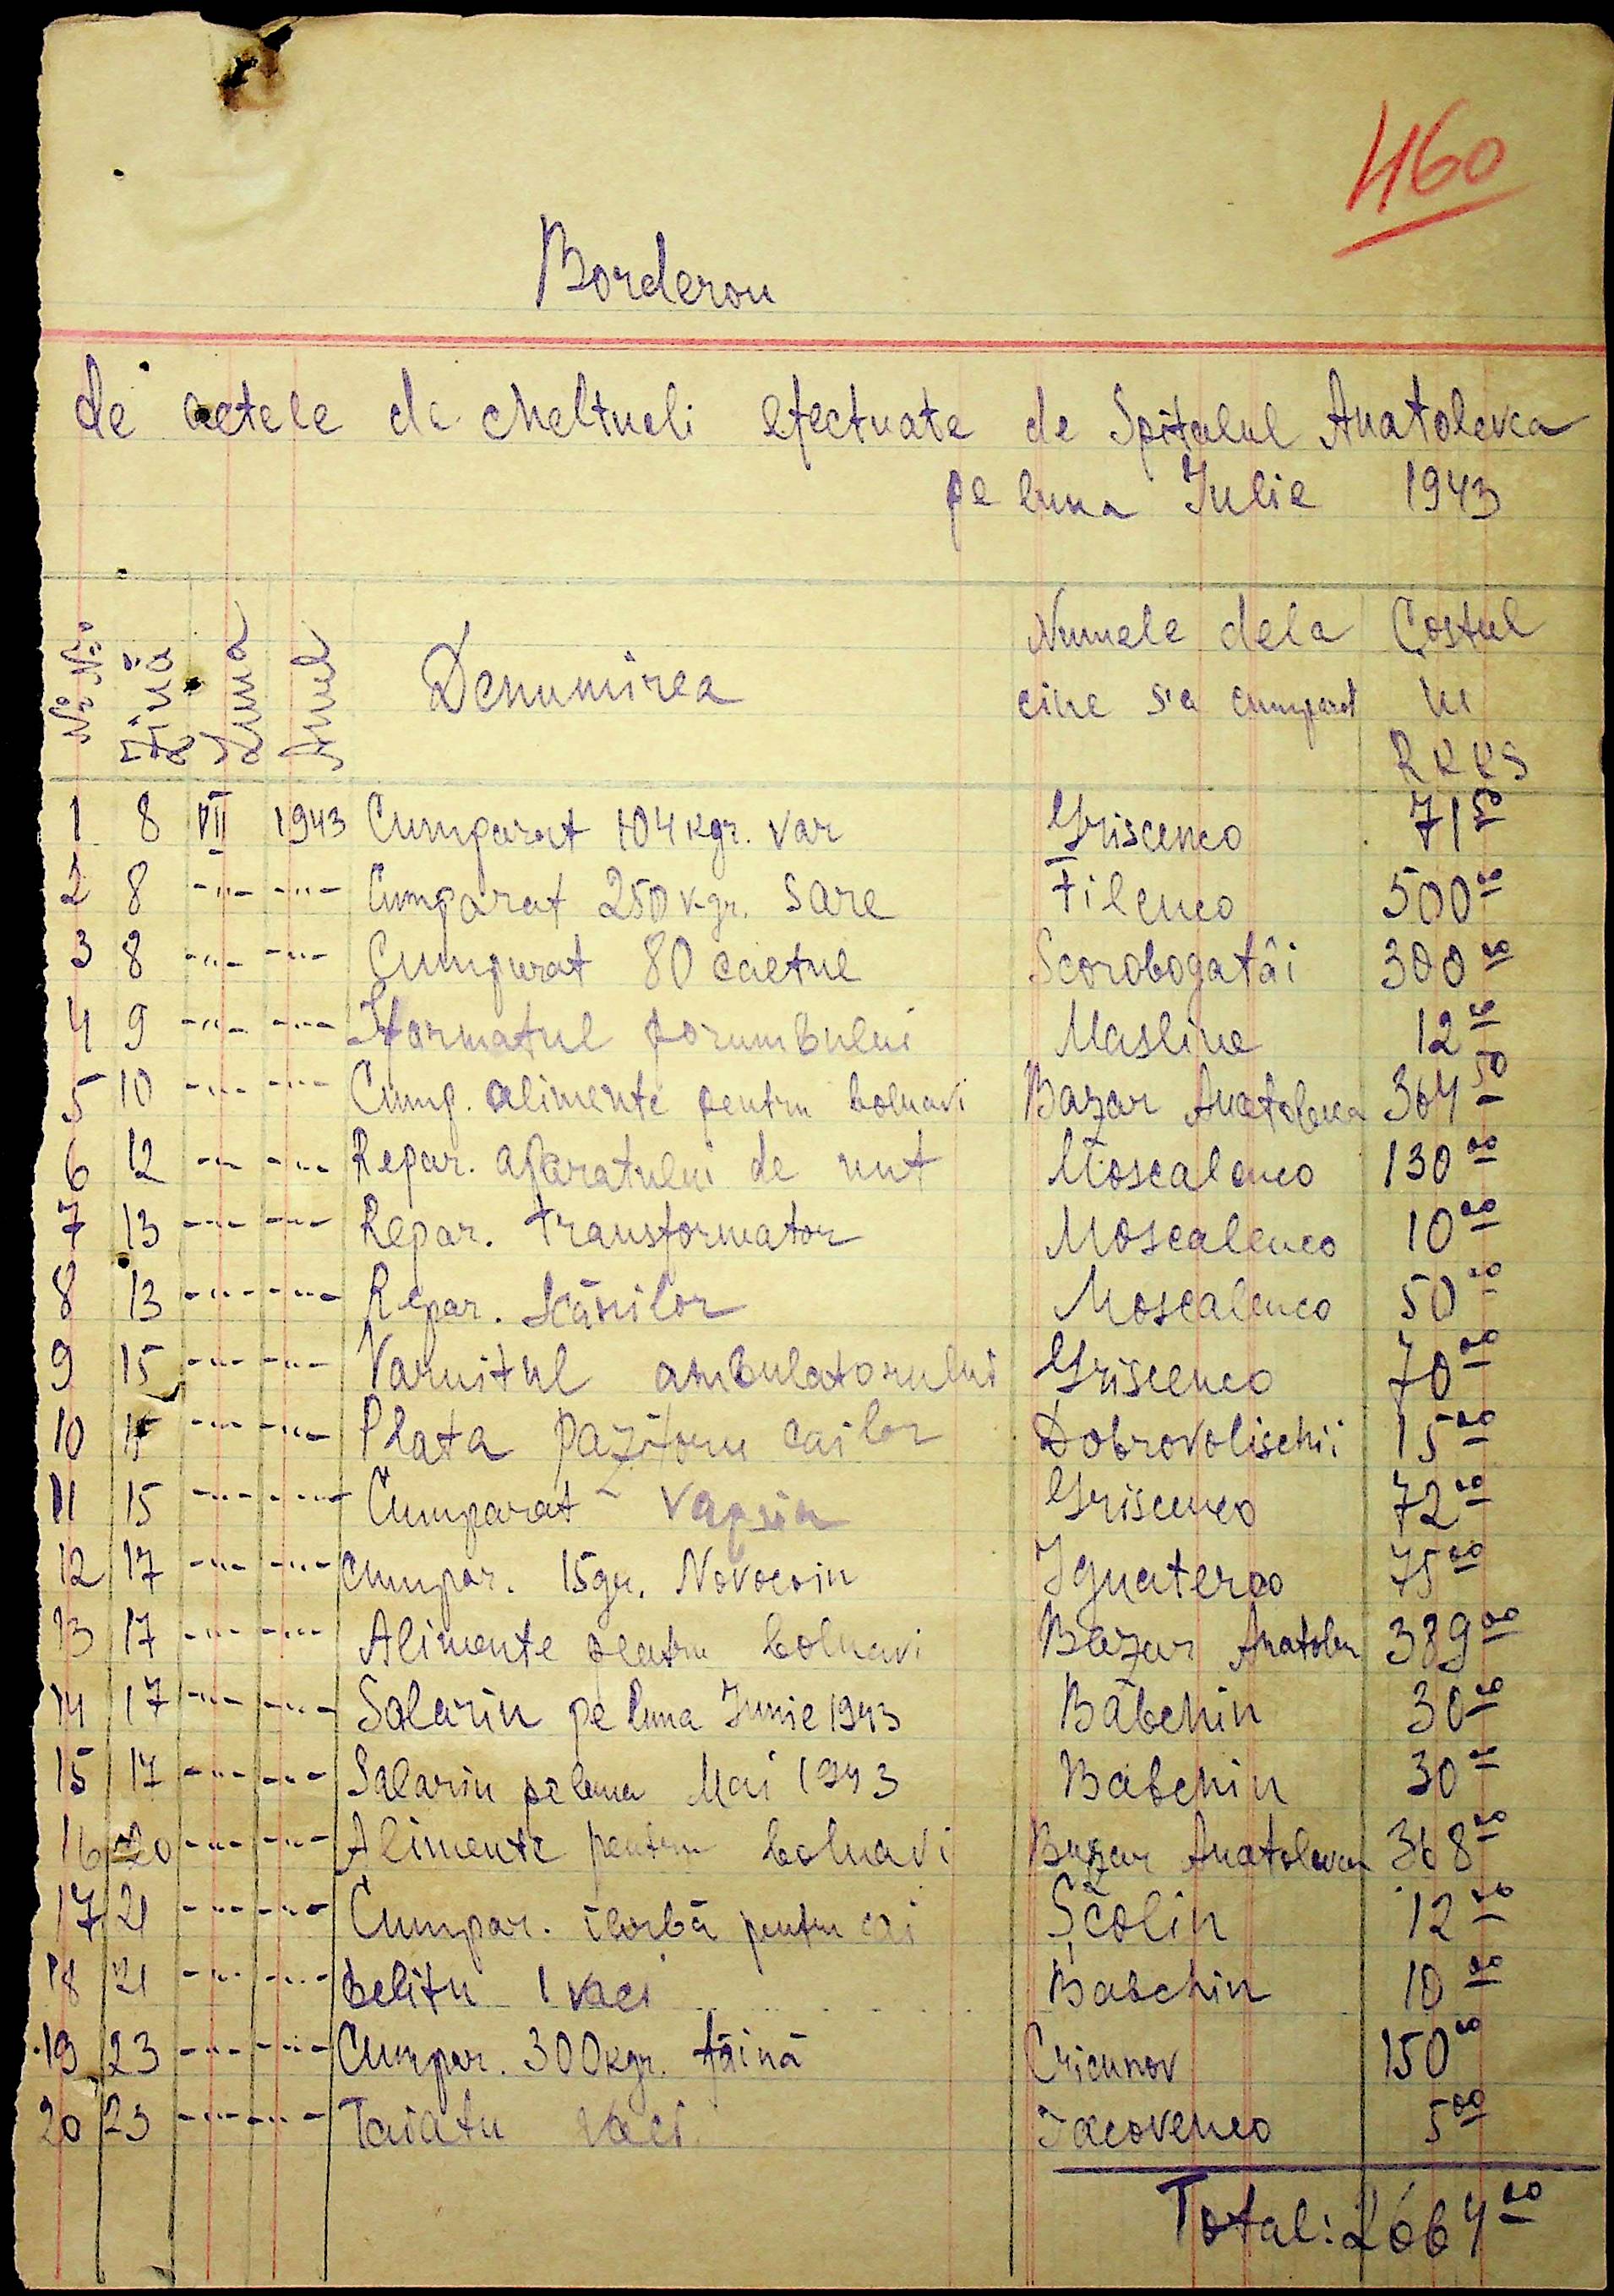 460
Borderou
de actele de cheltueli efectuate de Spitalul Anatolevca
pe luna Iulie 1943
№ № Ziua Luna Anul Denumirea Numele dela Costul
cine s'a cumparat in
RKKS
1 8 VII 1943 Cumparat 104 kgr. var Griscenco 71 50
2 8 -"- -"- Cumparat 250 kgr. sare Filenco 500 00
3 8 -"- -"- Cumparat 80 caetue Scorobogatâi 300 00
4 9 -"- -"- porumbului Masline 12 00
5 10 -"- -"- Cump. alimente pentru bolnavi Bazar Anatolevca 364 50
6 12 -"- -"- Repar. aparatului de unt Moscalenco 130 00
7 13 -"- -"- Repar. transformator Moscalenco 10 00
8 13 -"- -"- Repar. Moscalenco 50 00
9 15 -"- -"- Varuitul ambulatorului Griscenco 70 00
10 15 -"- -"- Plata pazitoru cailor Dobrovolischii 15 00
11 15 -"- -"- Cumparat vapsia Griscenco 72 00
12 17 -"- -"- Cumpar. 15 gr. Novocoin 75 00
13 17 -"- -"- Alimente pentru bolnavi Bazar Anatolev 389 00
14 17 -"- -"- Salariu pe luna Iunie 1943 Babchin 30 00
15 17 -"- -"- Salariu pe luna Mai 1943 Babchin 30 00
16 20 -"- -"- Alimente pentru bolnavi Bazar Anatolevca 368 00
17 21 -"- -"- Cumpar. iarbă pentru cai Școlin 12 00
18 21 -"- -"- belitu 1 vaci Babchin 10 00
19 23 -"- -"- Cumpar. 300 kgr. făină Cricunov 150 00
20 23 -"- -"- Taiatu vaci Iacovenco 5 00
Total: 2664 00